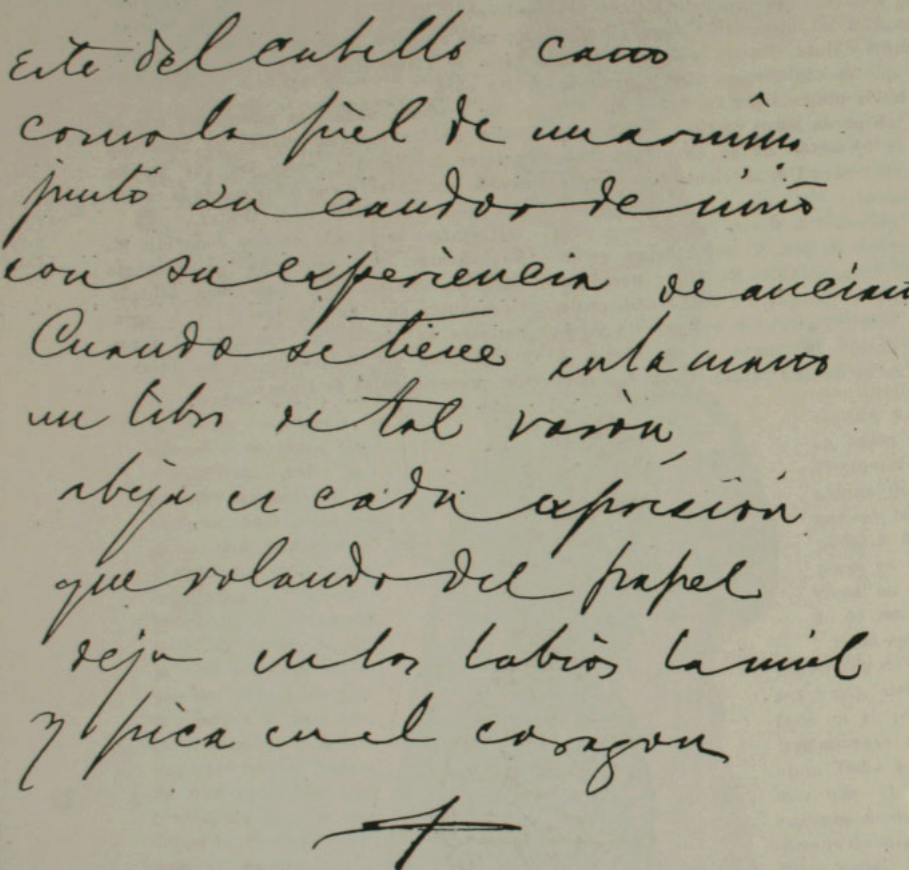 Este del cabello cano
como la piel de un armiño
juntó su candor de niño
con su experiencia de anciano
Cuando se tiene en la mano
un libro de tal varón,
abeja es cada expresión
que volando del papel
deja en los labios la miel
y pica en el corazon